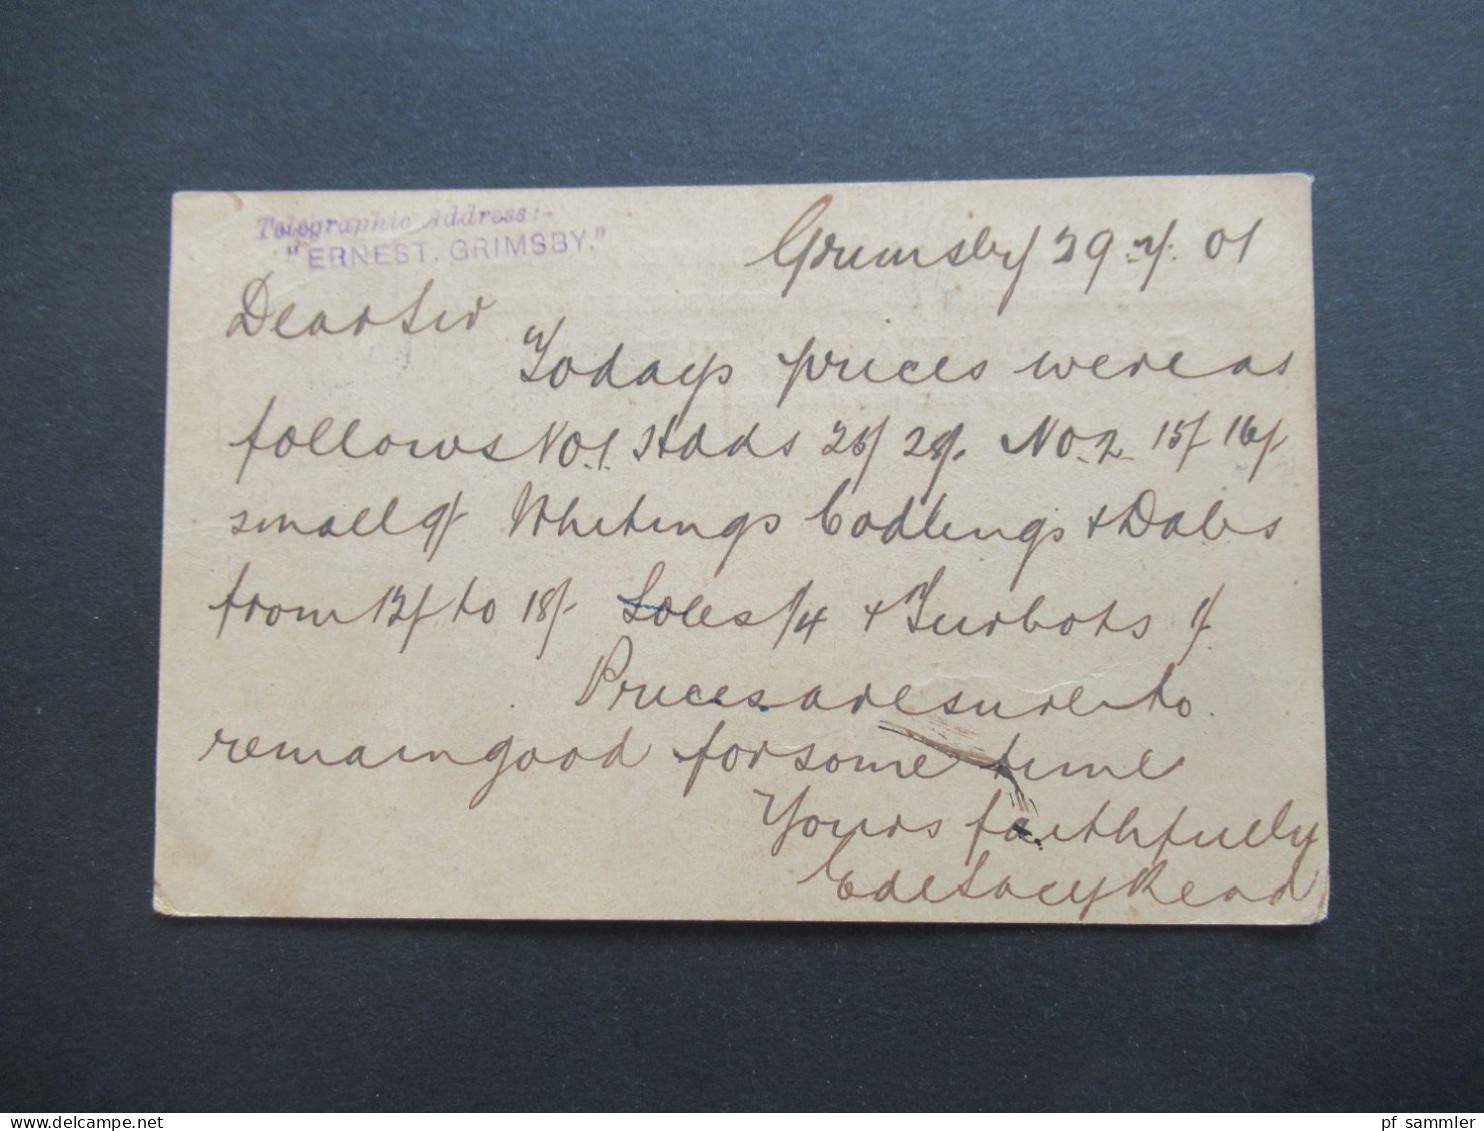 Telegraphic Address:-
"ERNEST, GRIMSBY."
Grimsby 29.7.01
Dear Sir
Todays prices were as
follows No.1. Hdds 26/ 28/. No.2 15/ 16/.
small 9/ Whitings Codlings + Dabs
from 12/ to 18/. Soles 1/4 + Turbots 1/
Prices are sure to
remain good for some time
Yours faithfully
E de Lacy Read
www.delcampe.net
pf_sammler